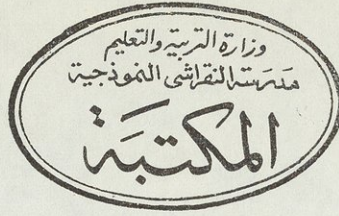 وزارة التربية والتعليم
مدرسة النقراشى النموذجية
المكتبة